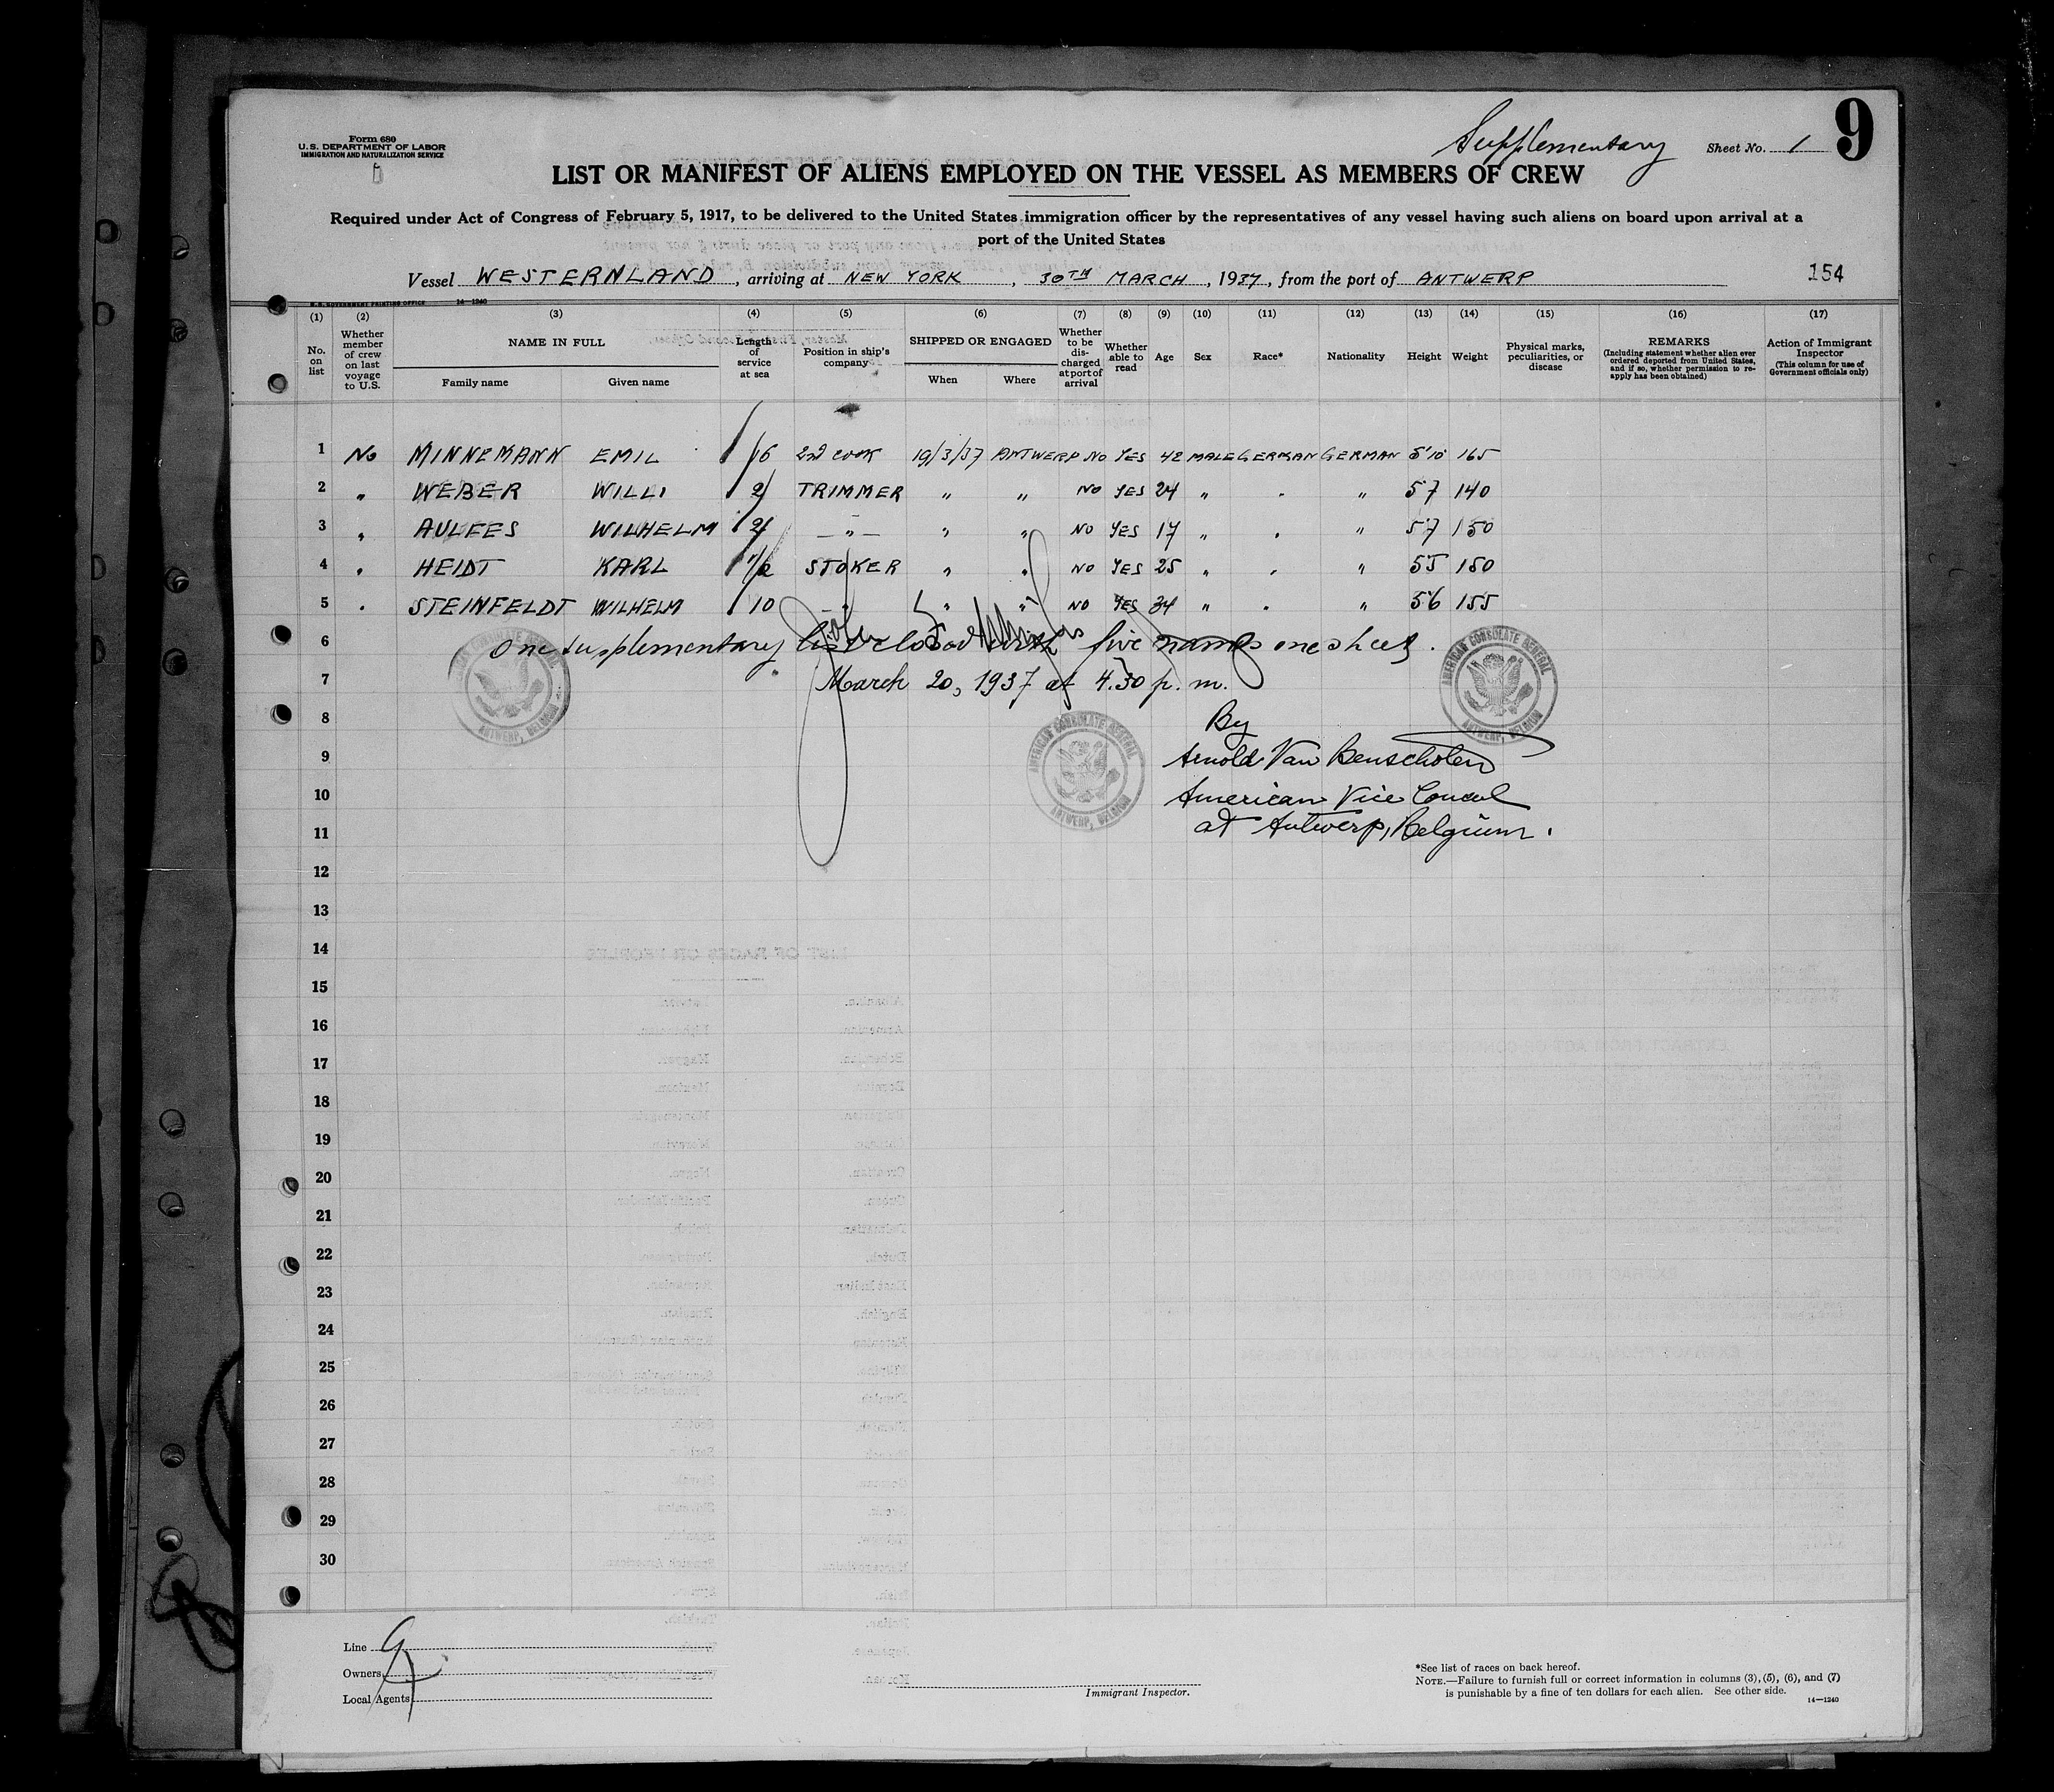 Supplementary Sheet No. 1 9
Form 680
U.S. DEPARTMENT OF LABOR
IMMIGRATION AND NATURALIZATION SERVICE
LIST OR MANIFEST OF ALIENS EMPLOYED ON THE VESSEL AS MEMBERS OF CREW
Required under Act of Congress of February 5, 1917, to be delivered to the United States immigration officer by the representatives of any vessel having such aliens on board upon arrival at a
port of the United States
Vessel WESTERNLAND, arriving at NEW YORK, 30TH MARCH, 1937, from the port of ANTWERP 154
U.S. GOVERNMENT PRINTING OFFICE 14—1240
(1) (2) (3) (4) (5) (6) (7) (8) (9) (10) (11) (12) (13) (14) (15) (16) (17)
No. on list
Whether member of crew on last voyage to U.S.
NAME IN FULL
Family name Given name
Length of service at sea
Position in ship's company
SHIPPED OR ENGAGED
When Where
Whether to be discharged at port of arrival
Whether able to read
Age Sex Race* Nationality Height Weight
Physical marks, peculiarities, or disease
REMARKS
(Including statement whether alien ever ordered deported from United States, and if so, whether permission to reapply has been obtained)
Action of Immigrant Inspector
(This column for use of Government officials only)
1 No MINNEMANN EMIL 16 2nd COOK 19/3/37 ANTWERP NO YES 42 MALE GERMAN GERMAN 5'10 165
2 " WEBER WILLI 2 TRIMMER " " NO YES 24 " " " 57 140
3 " AULFES WILHELM 2 —"— " " NO YES 17 " " " 57 150
4 " HEIDT KARL 1/2 STOKER " " NO YES 25 " " " 55 150
5 " STEINFELDT WILHELM 10 —"— " " NO YES 34 " " " 56 155
6 One supplementary list closed with five names one sheet.
7 March 20, 1937 at 4.30 p.m.
8 By
9 Arnold Van Benschoten
10 American Vice Consul
11 at Antwerp, Belgium.
AMERICAN CONSULATE GENERAL ANTWERP, BELGIUM
AMERICAN CONSULATE GENERAL ANTWERP, BELGIUM
AMERICAN CONSULATE GENERAL ANTWERP, BELGIUM
12
13
14
15
16
17
18
19
20
21
22
23
24
25
26
27
28
29
30
Line
Owners
Local Agents
Immigrant Inspector.
*See list of races on back hereof.
NOTE.—Failure to furnish full or correct information in columns (3), (5), (6), and (7)
is punishable by a fine of ten dollars for each alien. See other side.
14—1240